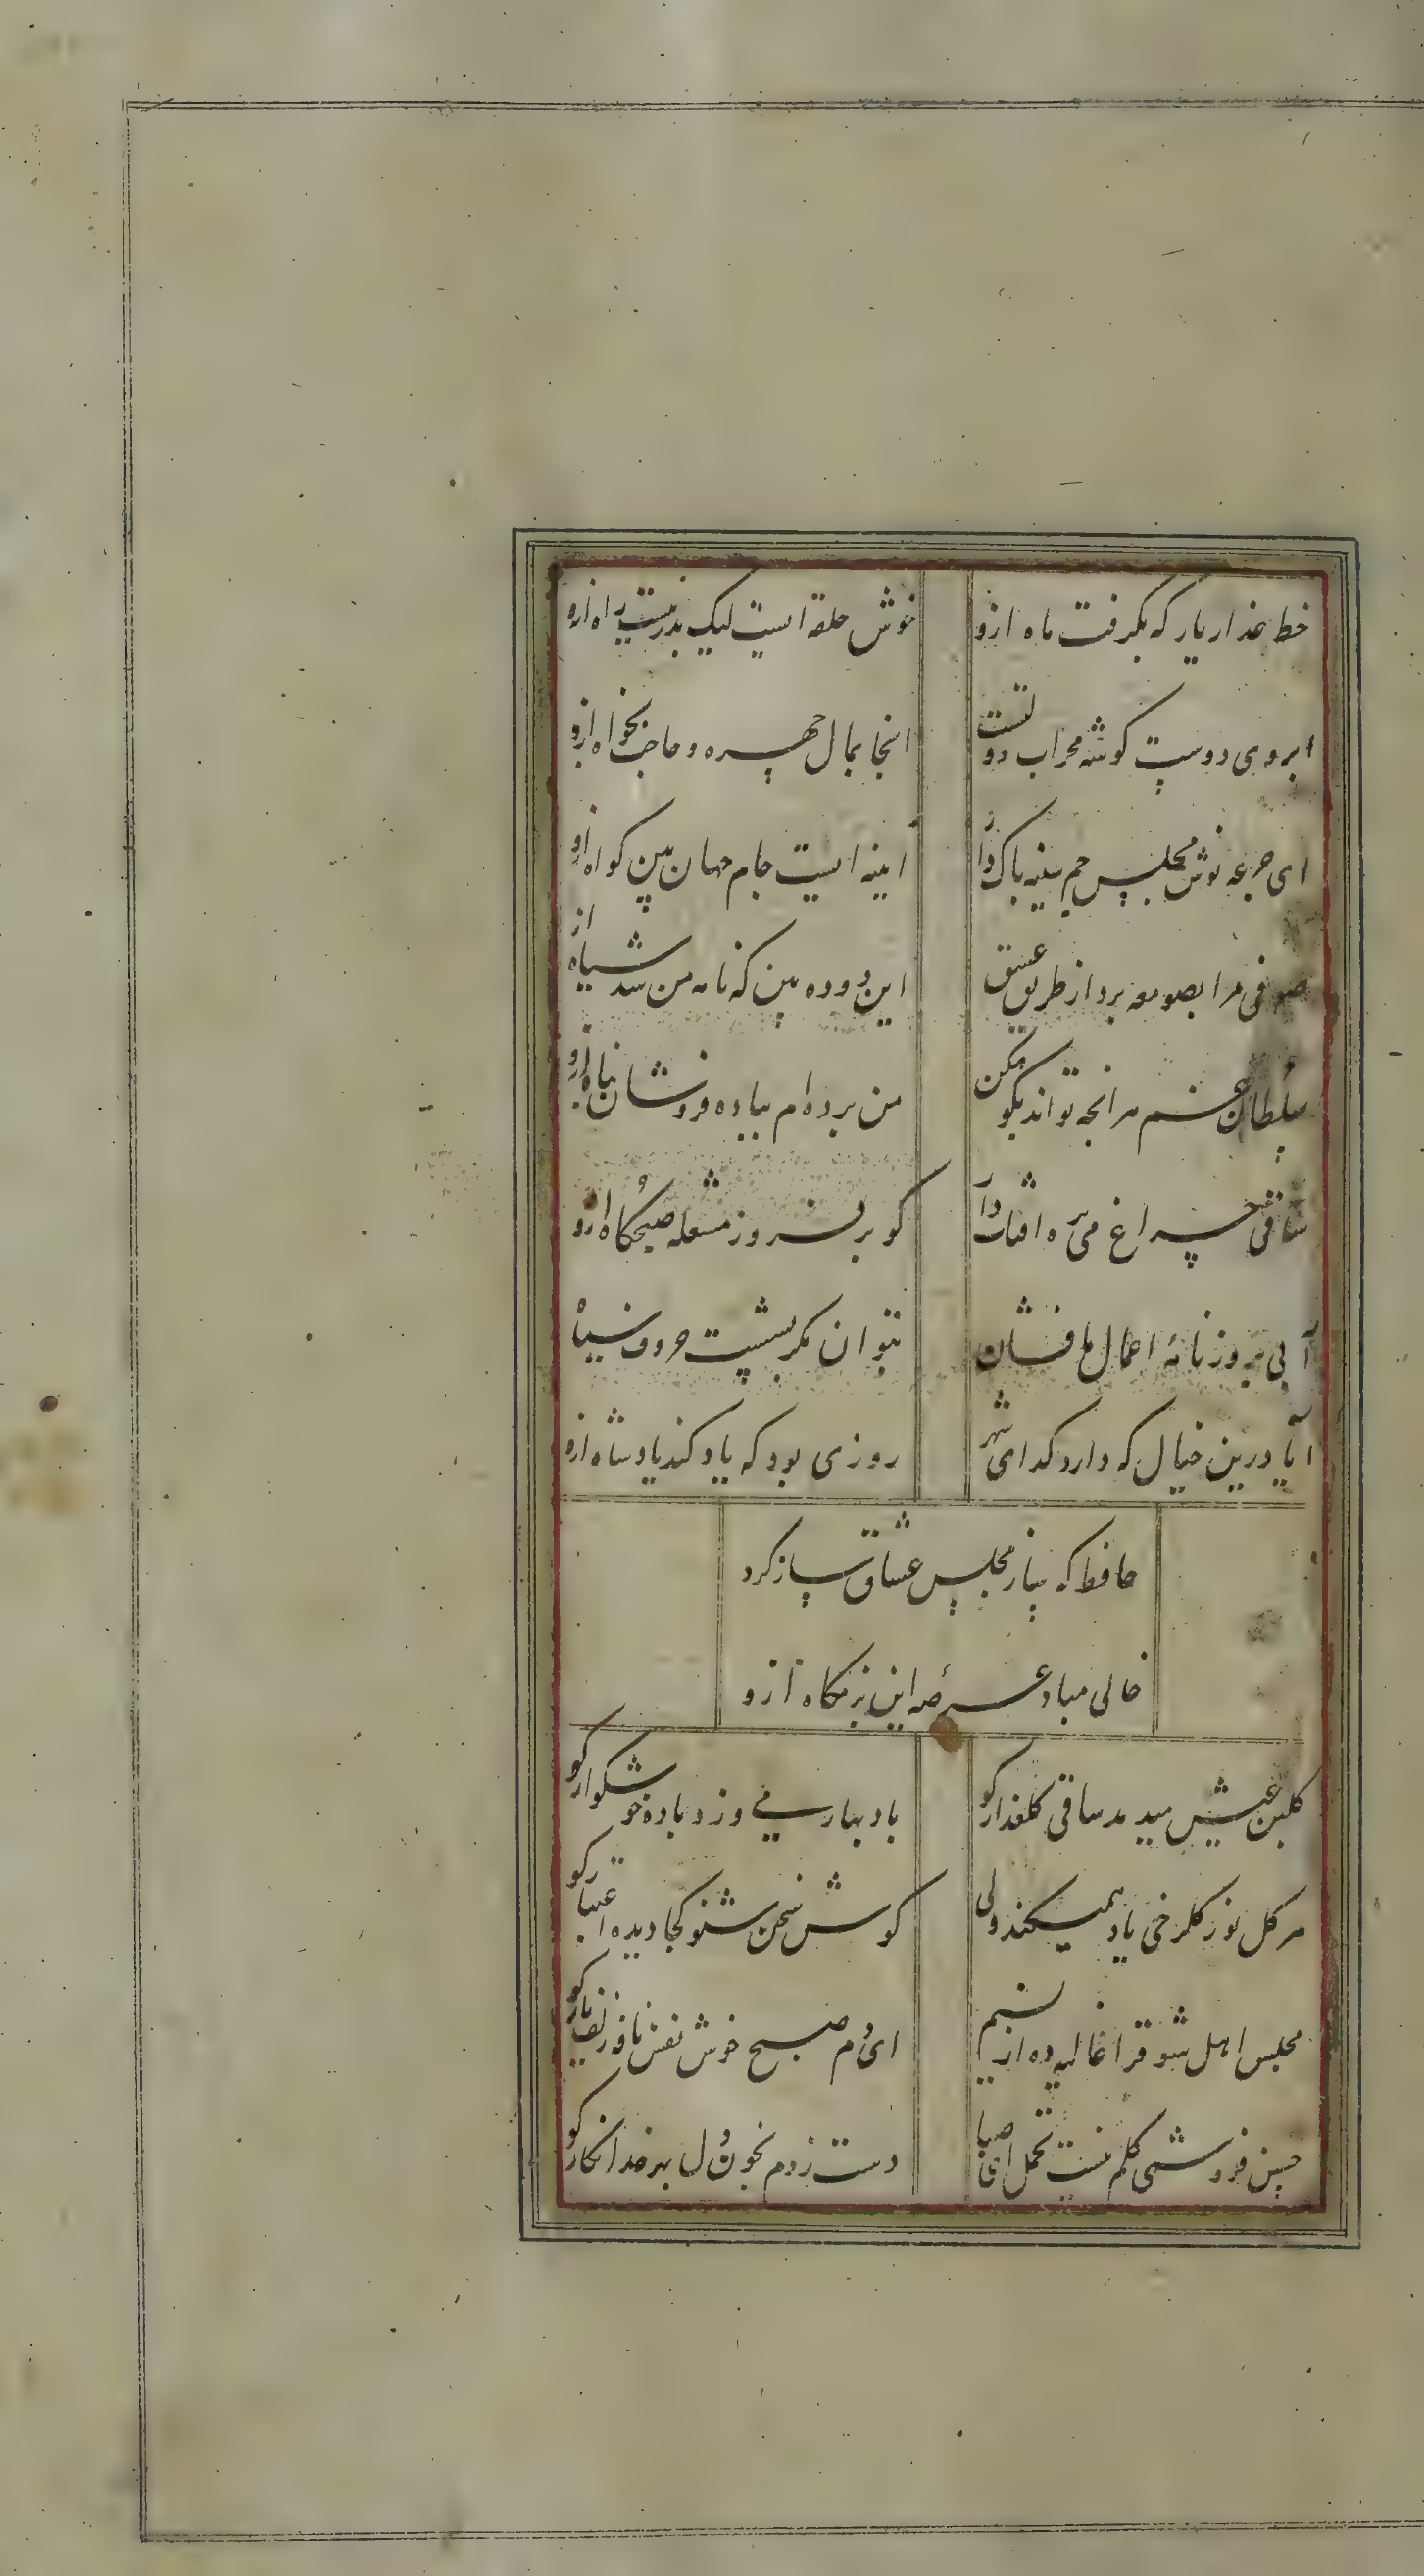 خط عذار یار که بگرفت ماه ازو
خوش حلقه ایست لیک بدر نیست راه ازو
ابروی دوست گوشه محراب دولتست
انجا بمال چهره و حاجت بخواه ازو
ای جرعه نوش مجلس جم سینه پاک دار
اینه ایست جام جهان بین که اه ازو
صوفی مرا بصومعه برد از طریق عشق
این دوده بین که نامه من شد سیاه از
سلطان غم هر انچه تواند بگو بکن
من برده ام بباده فروشان پناه ازو
ساقی چراغ می بره افتاب دار
گو بر فروز مشعله صبحگاه ازو
آبی بروزنامهٔ اعمال ما فشان
نتوان مگر بشست حروف سیاه
آیا درین خیال که دارد گدای شهر
روزی بود که یاد کند پادشاه ازو
حافظ که ساز مجلس عشاق ساز کرد
خالی مباد عرصهٔ این بزمگاه ازو
گلبن عیش میدمد ساقی گلعذار کو
باد بهار می وزد باده خوشگوار کو
هر گل نو ز گلرخی یاد همیکند ولی
گوش سخن شنو کجا دیده اعتبار کو
مجلس اهل شوق را غالیه ده از نسیم
ای دم صبح خوش نفس نافه زلف یار کو
حسن فروشی گلم نیست تحمل ای صبا
دست زدم بخون دل بهر خدا نگار کو